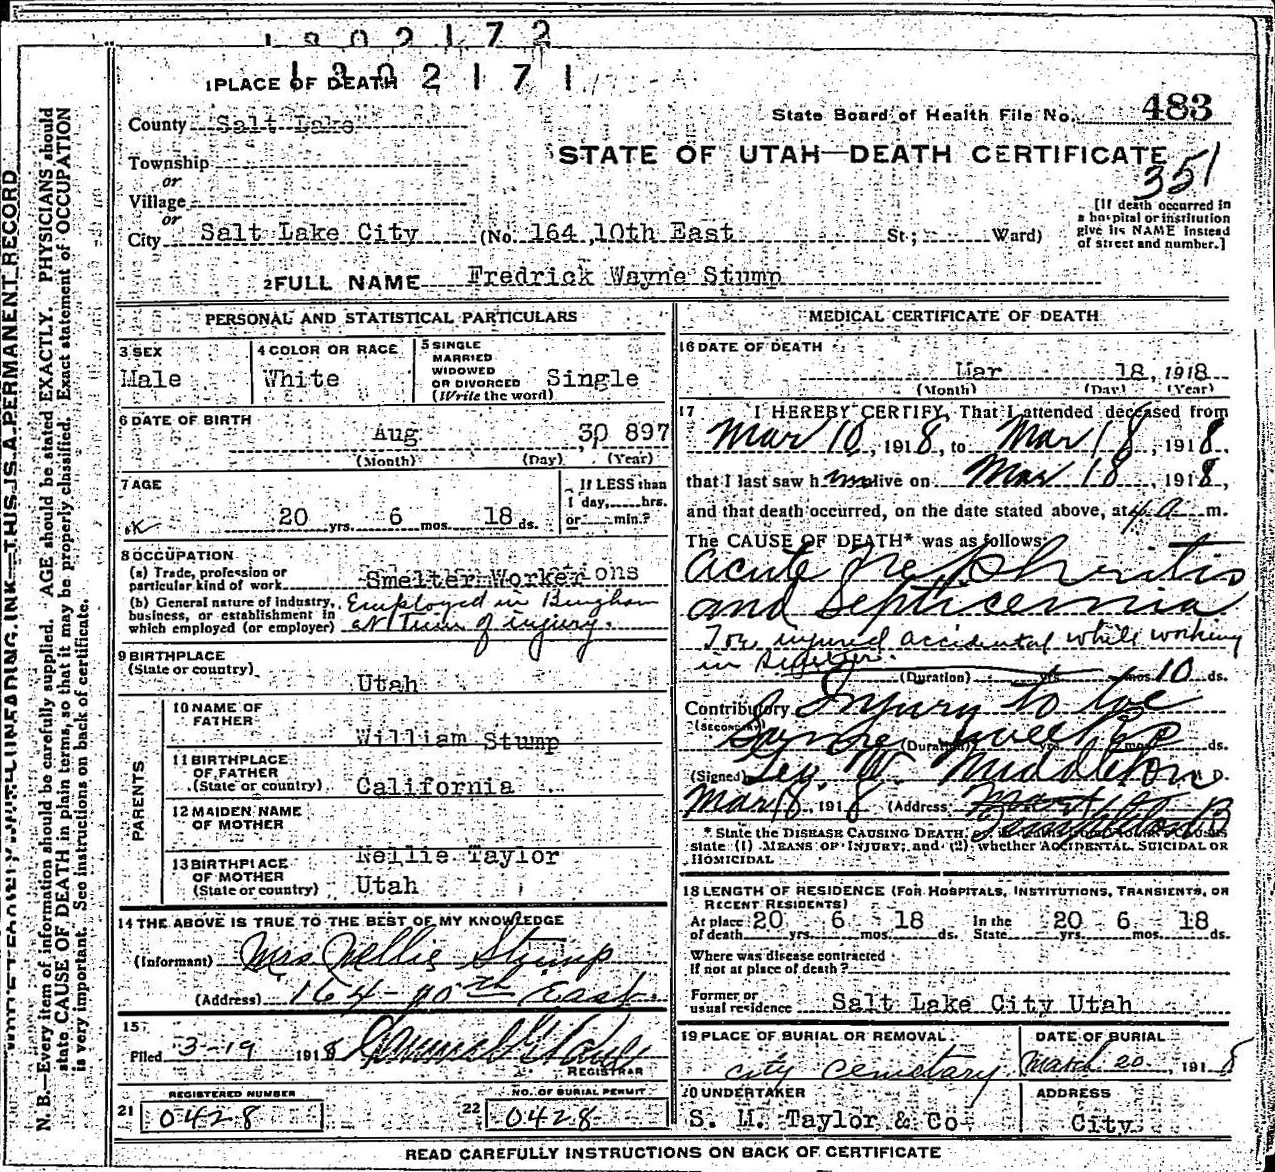 1302172
1302171
1 PLACE OF DEATH
County Salt Lake
State Board of Health File No. 483
Township
or
Village
or
STATE OF UTAH—DEATH CERTIFICATE
351
[If death occurred in
a hospital or institution
give its NAME instead
of street and number.]
City Salt Lake City (No. 164 10th East St; Ward)
2 FULL NAME Fredrick Wayne Stump
PERSONAL AND STATISTICAL PARTICULARS
3 SEX
Male
4 COLOR OR RACE
White
5 SINGLE
MARRIED
WIDOWED
OR DIVORCED Single
(Write the word)
6 DATE OF BIRTH
Aug 30 897
(Month) (Day) (Year)
7 AGE
20 yrs. 6 mos. 18 ds.
If LESS than
1 day, hrs.
or min.?
8 OCCUPATION
(a) Trade, profession or
particular kind of work Smelter Worker
(b) General nature of industry,
business, or establishment in
which employed (or employer)
Employed in Bingham
at time of injury.
9 BIRTHPLACE
(State or country)
Utah
PARENTS
10 NAME OF
FATHER
William Stump
11 BIRTHPLACE
OF FATHER
(State or country) California
12 MAIDEN NAME
OF MOTHER
Nellie Taylor
13 BIRTHPLACE
OF MOTHER
(State or country) Utah
14 THE ABOVE IS TRUE TO THE BEST OF MY KNOWLEDGE
(Informant) Mrs Nellie Stump
(Address) 164-10th East
15
Filed 3-19 1918
REGISTRAR
REGISTERED NUMBER
21 0428
NO. OF BURIAL PERMIT
22 0428
MEDICAL CERTIFICATE OF DEATH
16 DATE OF DEATH
Mar 18, 1918
(Month) (Day) (Year)
17 I HEREBY CERTIFY, That I attended deceased from
Mar 10, 1918, to Mar 18, 1918,
that I last saw him alive on Mar 18, 1918,
and that death occurred, on the date stated above, at 4 a m.
The CAUSE OF DEATH* was as follows:
Acute Nephritis
and Septicemia
Toe injured accidental while working
in
(Duration) yrs. mos. 10 ds.
Contributory Injury to toe
(Secondary)
Some weeks
(Duration) yrs. mos. ds.
(Signed) Geo. W. Middleton M. D.
Mar 18, 1918 (Address) Templeton B
* State the DISEASE CAUSING DEATH,
state (1) MEANS OF INJURY; and (2) whether ACCIDENTAL, SUICIDAL OR
HOMICIDAL
18 LENGTH OF RESIDENCE (FOR HOSPITALS, INSTITUTIONS, TRANSIENTS, OR
RECENT RESIDENTS)
At place
of death 20 yrs. 6 mos. 18 ds.
In the
State 20 yrs. 6 mos. 18 ds.
Where was disease contracted
if not at place of death?
Former or
usual residence Salt Lake City Utah
19 PLACE OF BURIAL OR REMOVAL
city cemetary
DATE OF BURIAL
March 20, 1918
20 UNDERTAKER
S. M. Taylor & Co
ADDRESS
City
READ CAREFULLY INSTRUCTIONS ON BACK OF CERTIFICATE
WRITE PLAINLY, WITH UNFADING INK—THIS IS A PERMANENT RECORD
N. B.—Every item of information should be carefully supplied. AGE should be stated EXACTLY. PHYSICIANS should
state CAUSE OF DEATH in plain terms, so that it may be properly classified. Exact statement of OCCUPATION
is very important. See instructions on back of certificate.